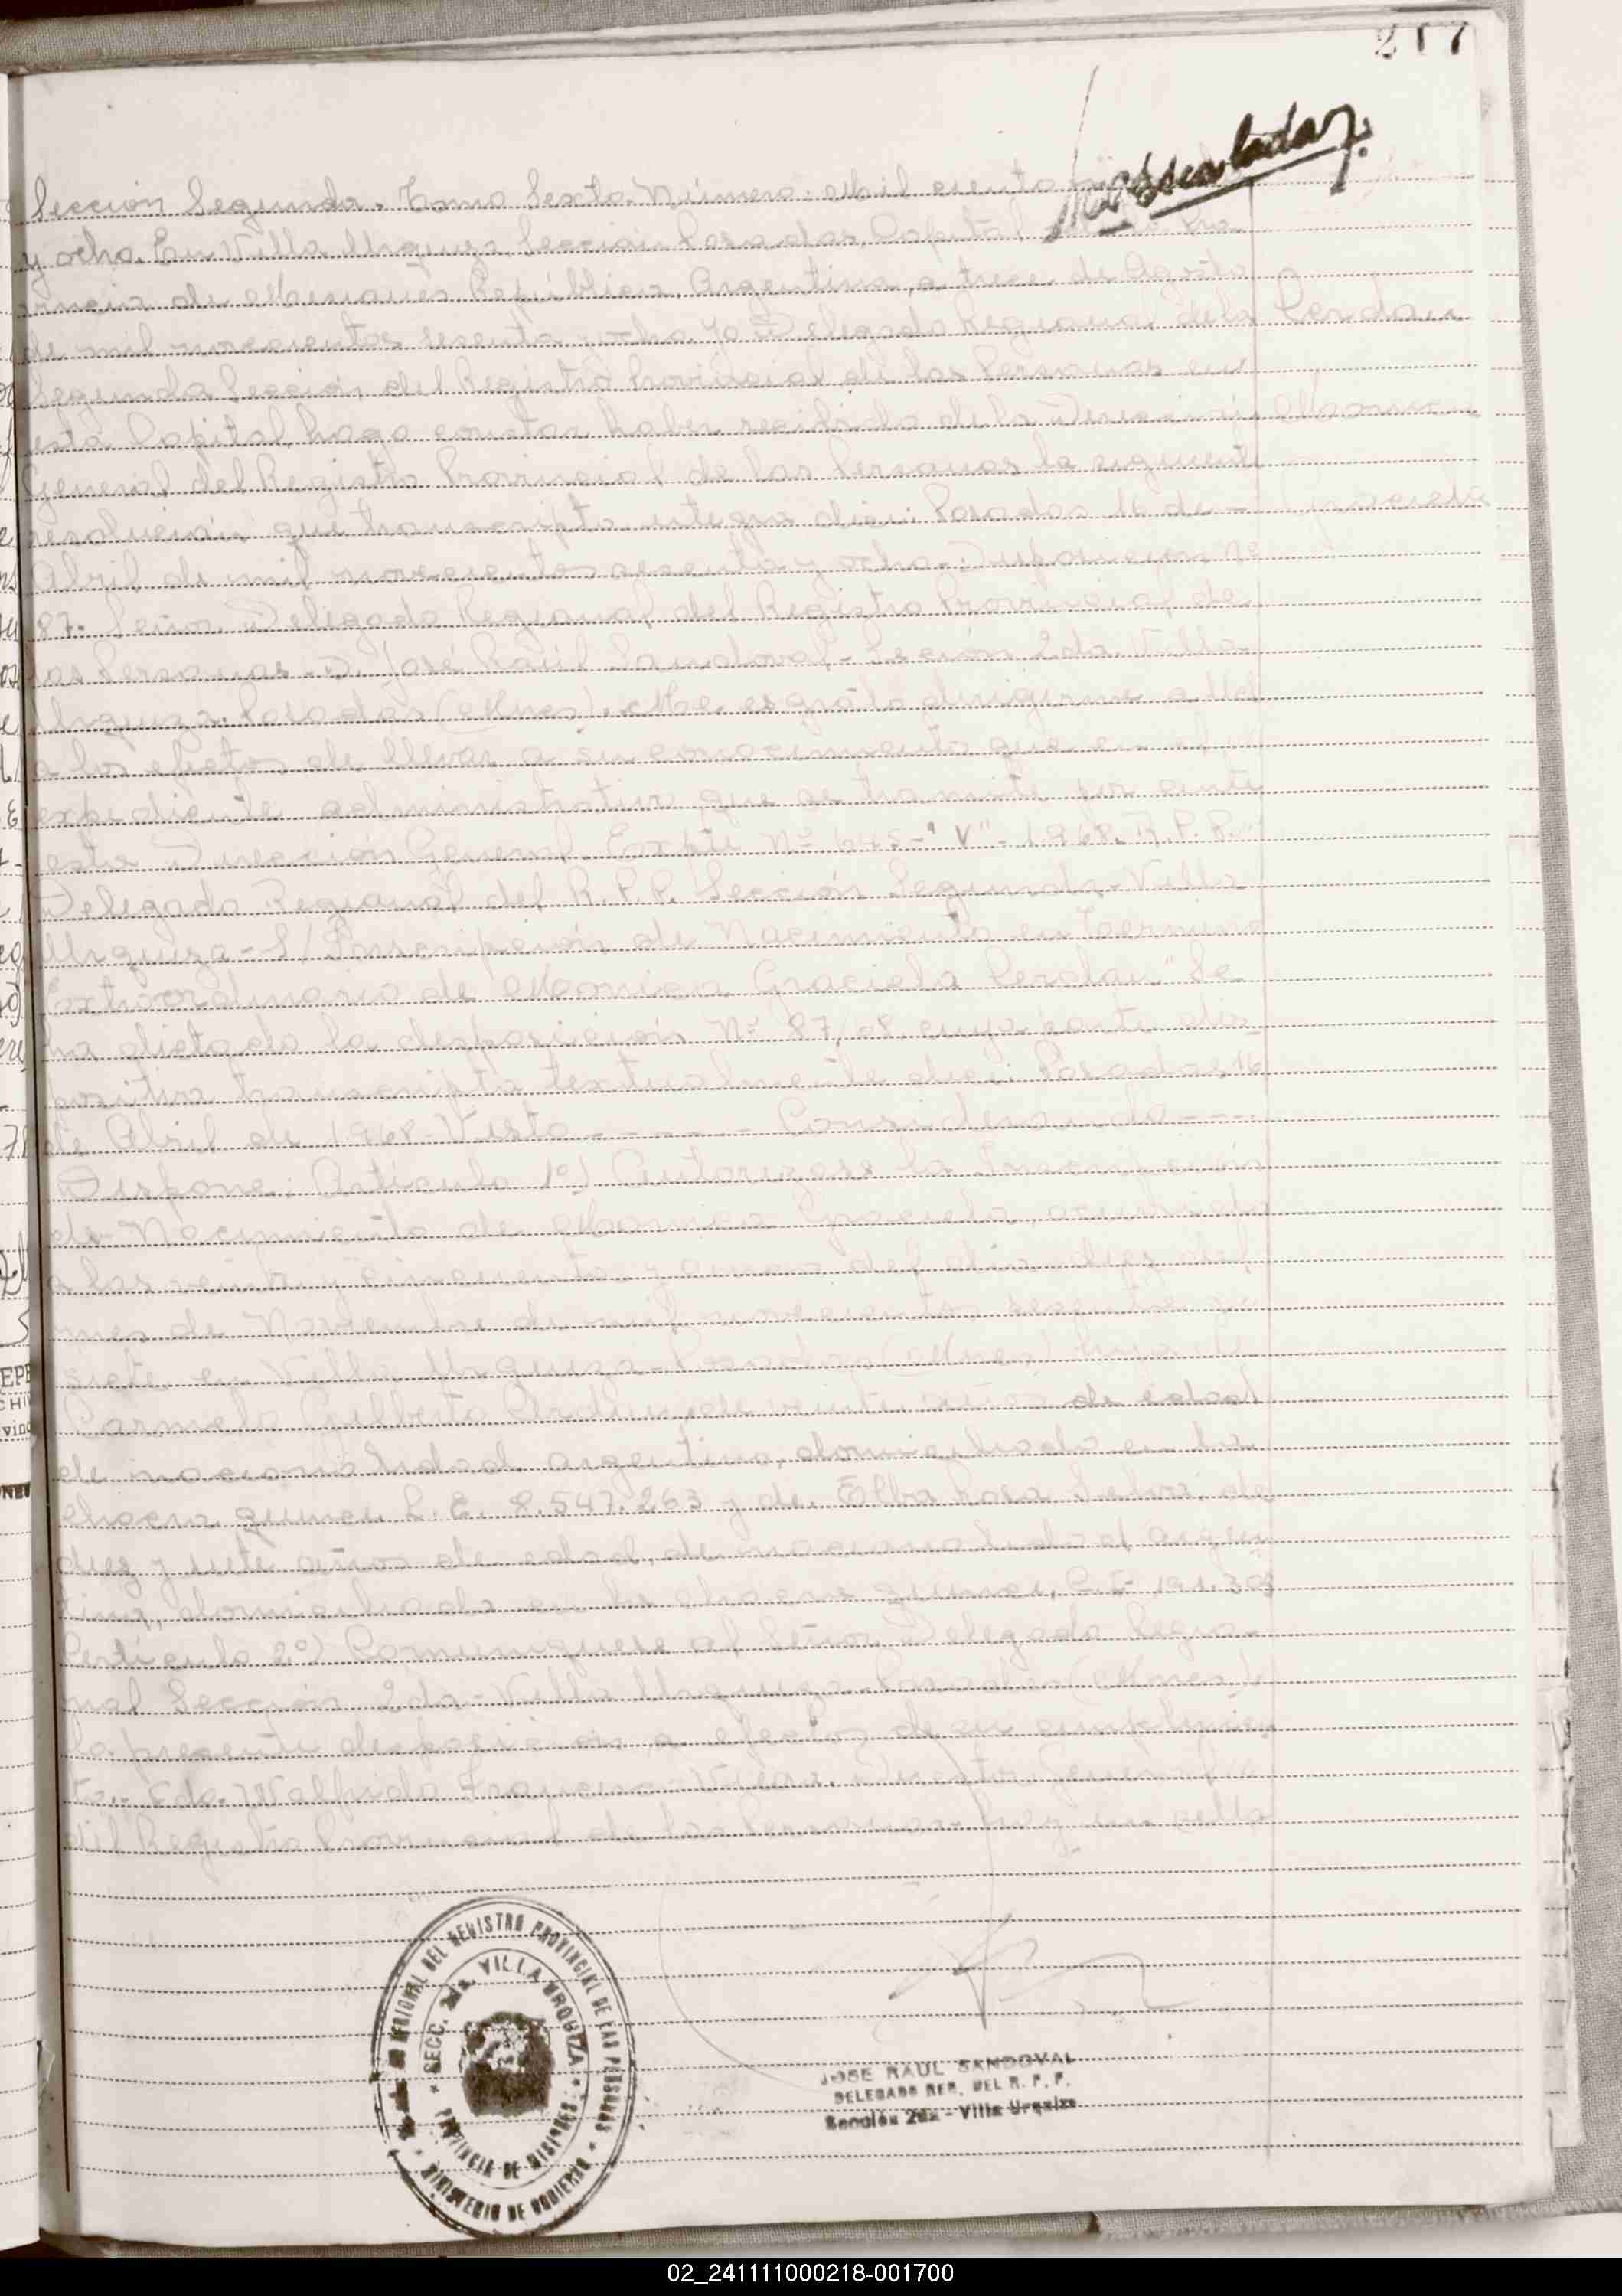 217
Sección Segunda. Tomo Sexto. Número: Mil ciento
y ocho. En Villa Urquiza, Sección Posadas, Capital de la Pro
vincia de Misiones, República Argentina, a trece de Agosto
de mil novecientos sesenta y ocho. Yo Delegado Regional de la
Perdau
Segunda Sección del Registro Provincial de las Personas en
esta Capital, hago constar haber recibido de la Dirección
Monica
General del Registro Provincial de las Personas la siguiente
resolución que transcripta integra dice: Posadas 16 de-
Graciela
Abril de mil novecientos sesenta y ocho. Disposición Nº
87. Señor Delegado Regional del Registro Provincial de
las Personas. D. José Raúl Sandoval- Sección 2da Villa
Urquiza. Posadas (Mnes). Me es grato dirigirme a Ud
a los efectos de llevar a su conocimiento que en el
expediente administrativo que se tramite por ante
esta Dirección General. Expte Nº 643-"V"-1968. R.P.P.
Delegado Regional del R.P.P. Sección Segunda- Villa
Urquiza- S/Inscripción de Nacimiento en Termino
Extraordinario de Monica Graciela Perdau" Se
ha dictado la disposición Nº 87/68, cuya parte dis-
positiva transcripta textualmente dice: Posadas, 16
de Abril de 1968- Visto - - - - - - Considerando - - - -
Dispone: Artículo 1º) Autorizase la Inscripción
de Nacimiento de Monica Graciela, ocurrido
a las cinco y cincuenta y del día diez del
mes de Noviembre de mil novecientos sesenta y
siete en Villa Urquiza- Posadas (Mnes) hija de
Carmelo Gilberto de veinte años de edad
de nacionalidad argentina, domiciliado en la
chacra quince L.E. 8.547.263 y de Elba Rosa de
diez y siete años de edad, de nacionalidad argen
tina, domiciliada en la chacra quince, C.I. 191.303
Artículo 2º) Comuniquese al Señor Delegado Regio-
nal Sección 2da- Villa Urquiza- Posadas (Mnes)
la presente disposición a efectos de su cumplimien
to.. Fdo. Walfrido Francisco Director General
del Registro Provincial de las Personas- Hay un sello
REGIONAL DEL REGISTRO PROVINCIAL DE LAS PERSONAS
SECC. 2da. VILLA URQUIZA
PROVINCIA DE MISIONES
MINISTERIO DE GOBIERNO
JOSE RAUL SANDOVAL
DELEGADO REG. DEL R. P. P.
Sección 2da - Villa Urquiza
02_241111000218-001700